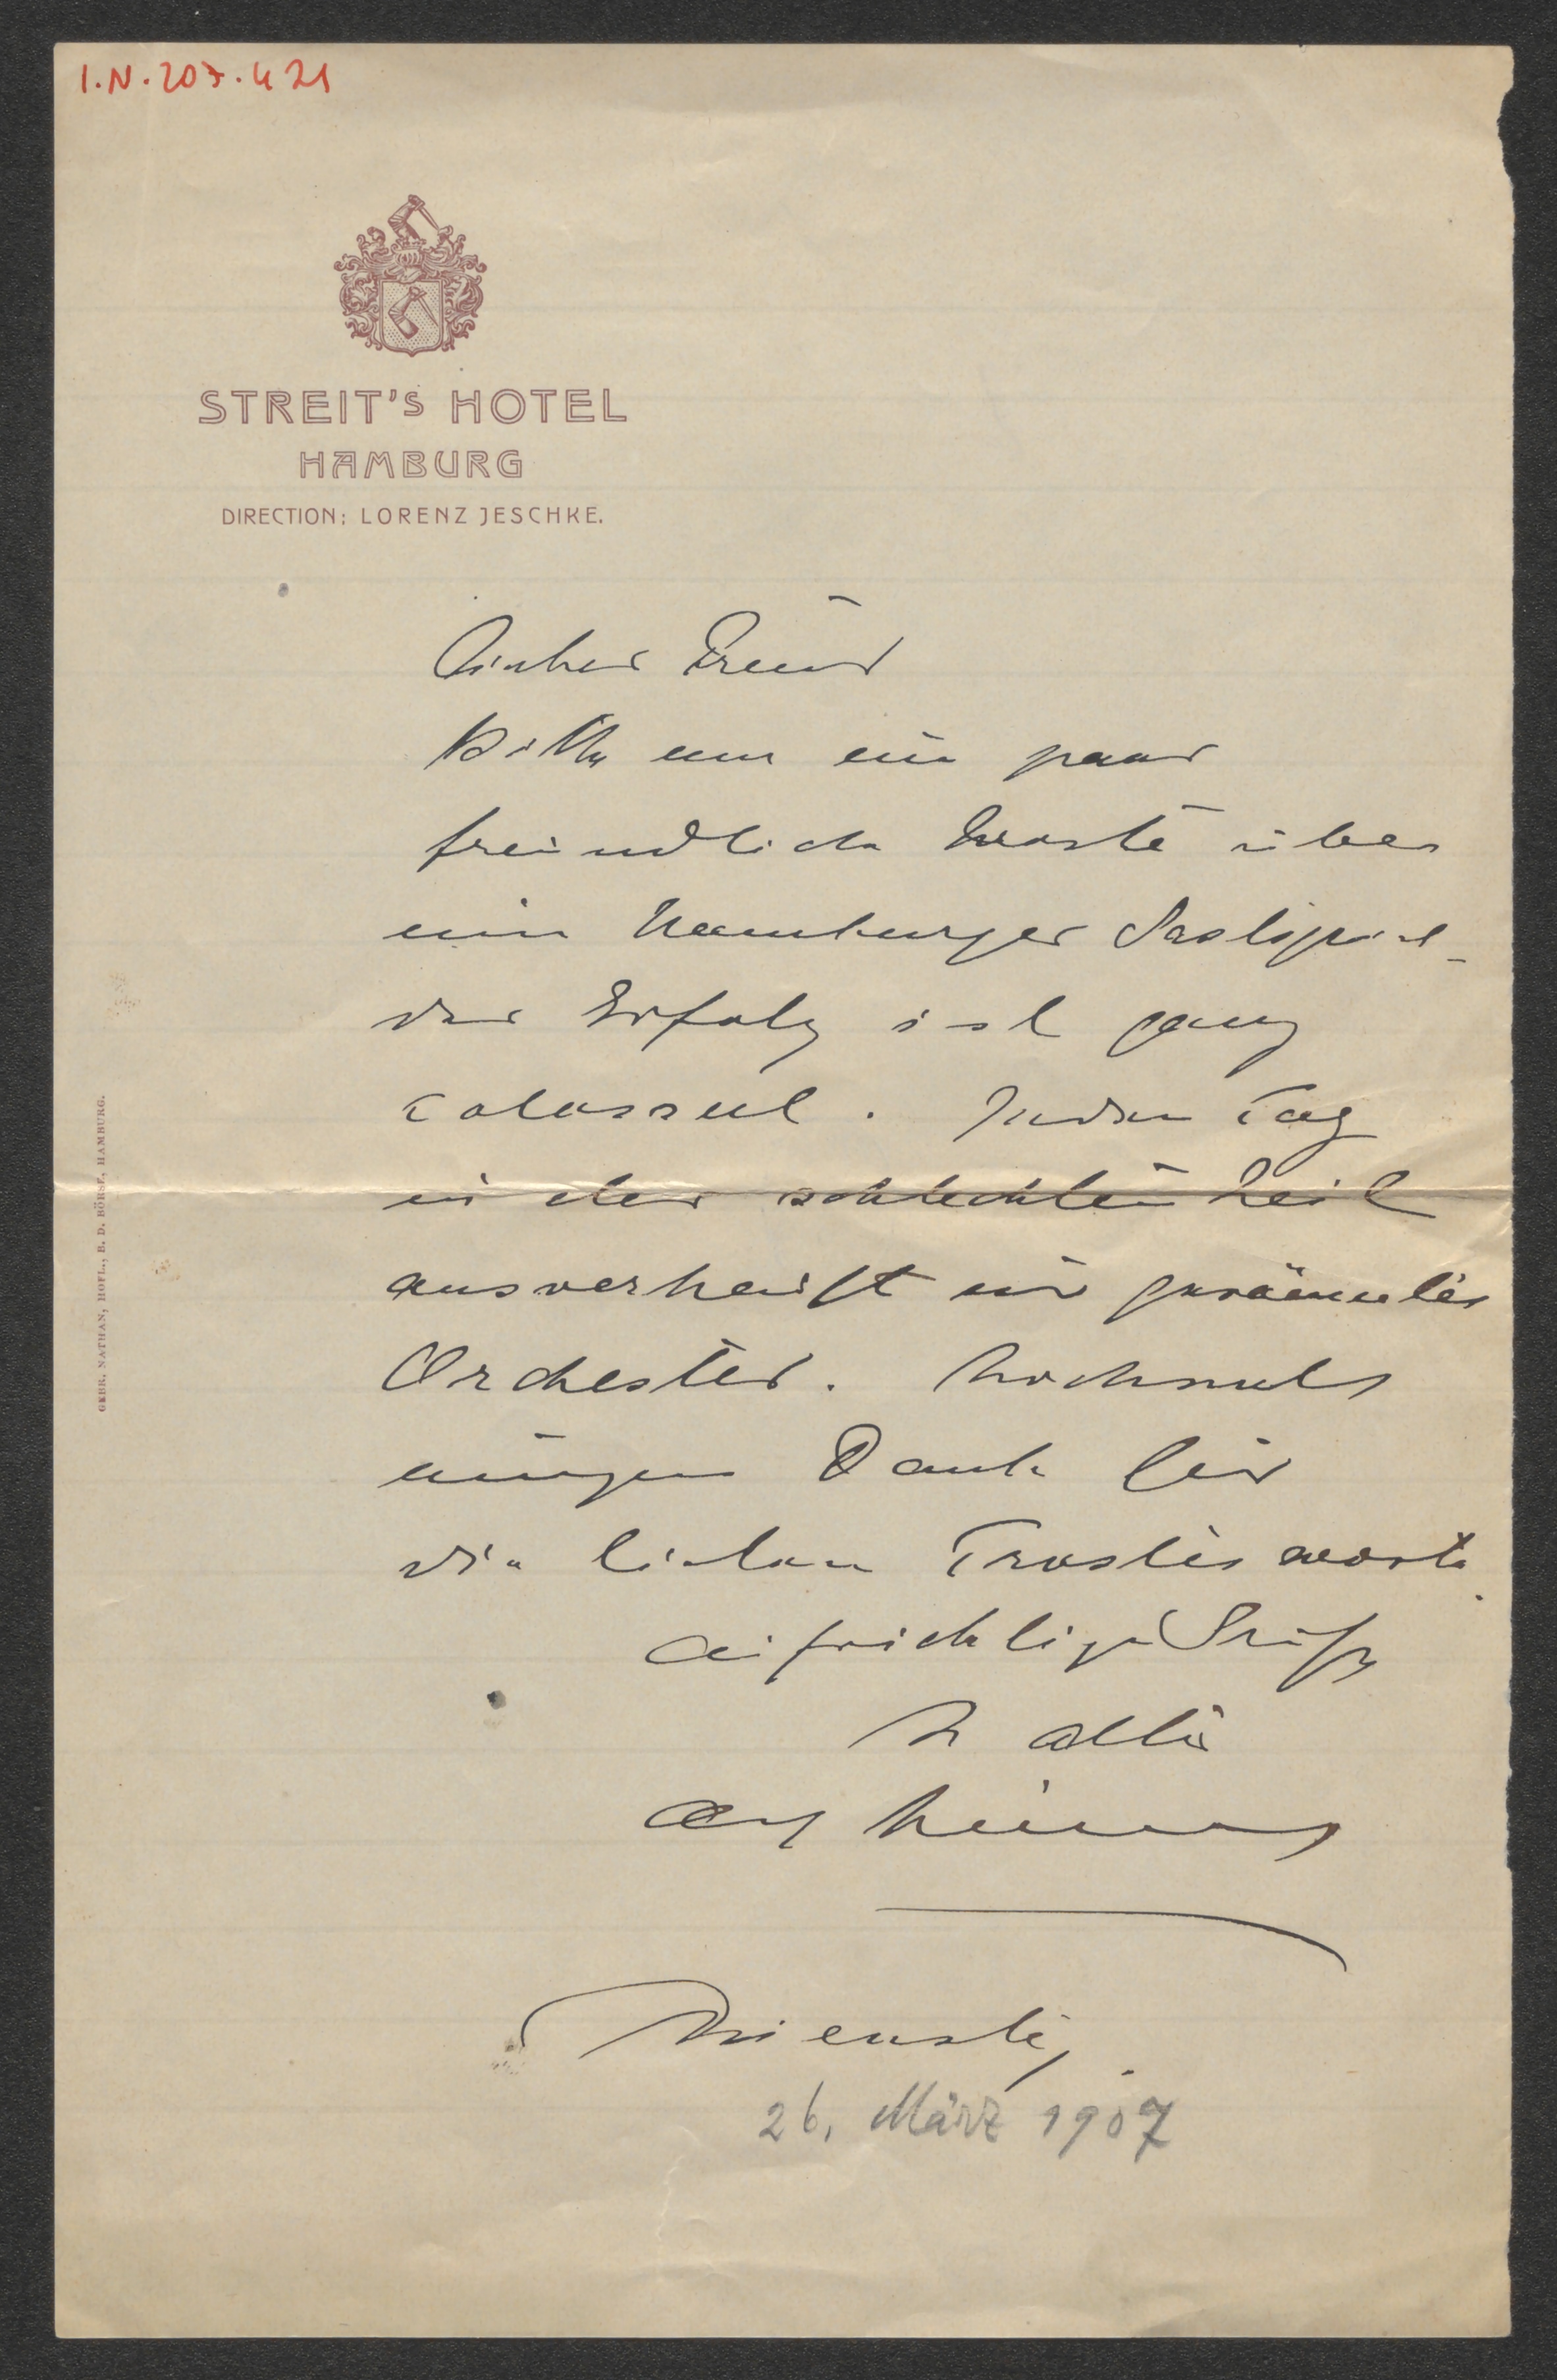 I.N. 207.421
STREIT'S HOTEL
HAMBURG
DIRECTION: LORENZ JESCHKE.
Lieber Freund
Bitte um ein paar
freundliche Worte über
mein Hamburger Gastspiel_
der Erfolg ist ganz
colossal. Jeden Tag
in der schlechten Zeit
ausverkauft mit geräumtes
Orchester. Nochmals
innigen Dank für
die lieben Trostesworte.
aufrichtige Grüße
alte
Dienstag
26. März 1907
GEBR. NATHAN, HOFL., B. D. BÖRSE, HAMBURG.